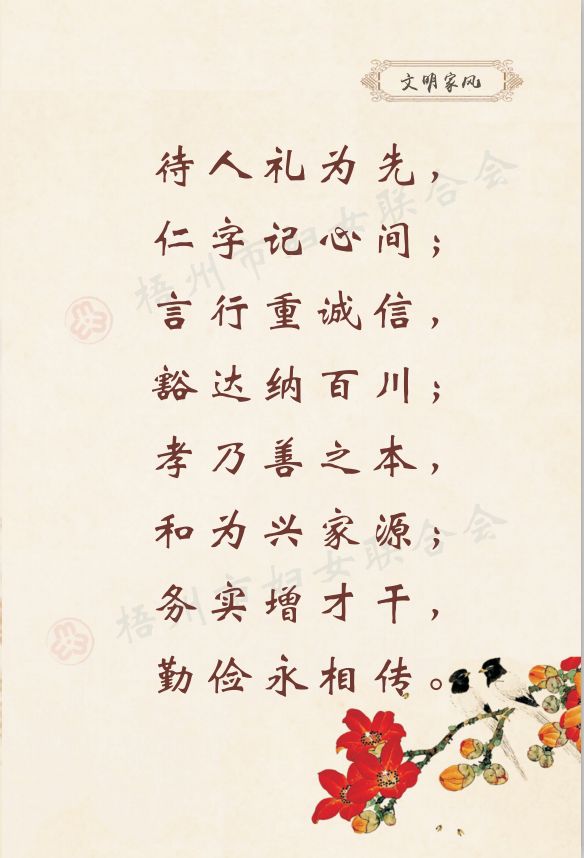 文明家风
待人礼为先，
仁字记心间；
言行重诚信，
豁达纳百川；
孝乃善之本，
和为兴家源；
务实增才干，
勤俭永相传。
梧州市妇女联合会
梧州市妇女联合会